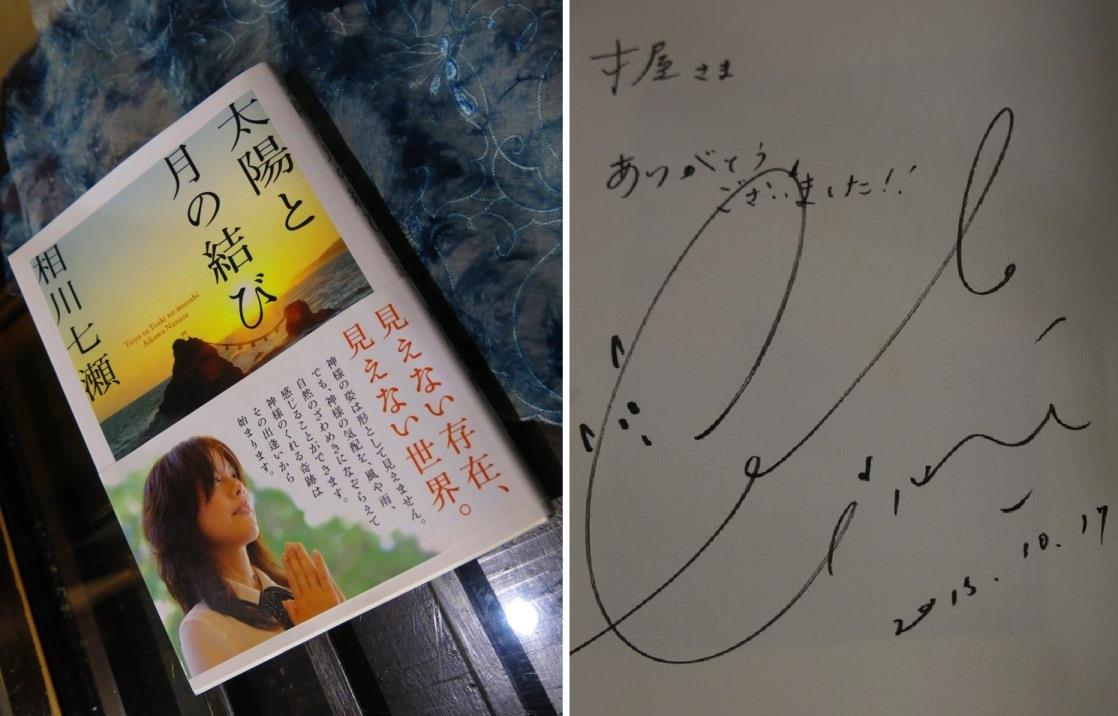 太陽と
月の結び
相川七瀬
Taiyo to Tsuki no musubi
Aikawa Nanase
見えない存在、
見えない世界。
神様の姿は形として見えません。
でも、神様の気配を、風や雨、
自然のざわめきになぞらえて
感じることができます。
神様のくれる奇跡は
その出逢いから
始まります。
才屋さま
ありがとう
ございました!!
2015.10.17